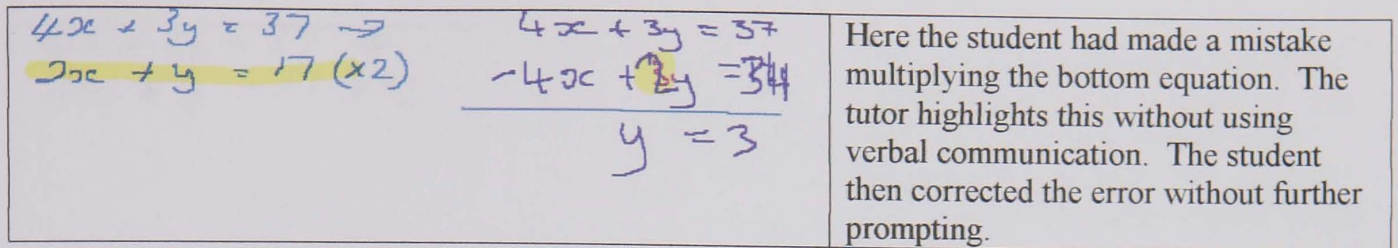 4x + 3y = 37 →
2x + y = 17 (×2)
4x + 3y = 37
-4x + 2y = 34
y = 3
Here the student had made a mistake
multiplying the bottom equation. The
tutor highlights this without using
verbal communication. The student
then corrected the error without further
prompting.